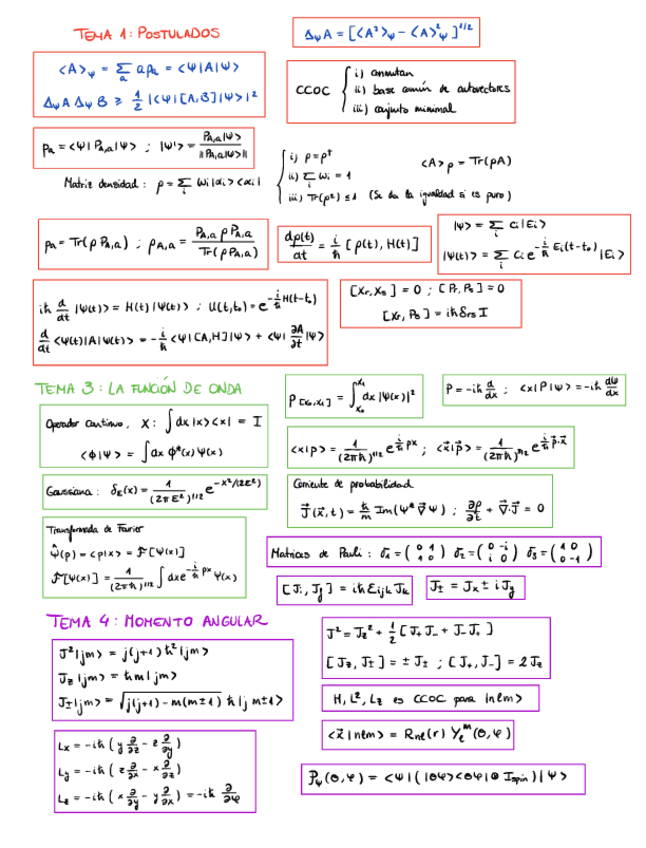 TEMA 1: POSTULADOS
Δ_ψ A = [<A²>_ψ - <A>²_ψ]^{1/2}
<A>_ψ = Σ_a a p_a = <ψ|A|ψ>
Δ_ψ A Δ_ψ B ≥ 1/2 |<ψ|[A,B]|ψ>|²
CCOC { i) conmutan
ii) base común de autovectores
iii) conjunto minimal
p_a = <ψ|P_{A,a}|ψ> ; |ψ'> = P_{A,a}|ψ> / ||P_{A,a}|ψ>||
Matriz densidad: ρ = Σ_i ω_i |α_i><α_i|
{ i) ρ = ρ†
ii) Σ_i ω_i = 1
iii) Tr(ρ²) ≤ 1 (Se da la igualdad si es puro)
<A>_ρ = Tr(ρA)
p_a = Tr(ρ P_{A,a}) ; ρ_{A,a} = P_{A,a} ρ P_{A,a} / Tr(ρ P_{A,a})
dρ(t)/dt = i/ħ [ρ(t), H(t)]
|ψ> = Σ_i c_i |E_i>
|ψ(t)> = Σ_i c_i e^{-i/ħ E_i(t-t₀)} |E_i>
iħ d/dt |ψ(t)> = H(t)|ψ(t)> ; U(t,t₀) = e^{-i/ħ H(t-t₀)}
d/dt <ψ(t)|A|ψ(t)> = -i/ħ <ψ|[A,H]|ψ> + <ψ| ∂A/∂t |ψ>
[X_r, X_s] = 0 ; [P_r, P_s] = 0
[X_r, P_s] = iħ δ_{rs} I
TEMA 3: LA FUNCIÓN DE ONDA
P_{[x₀,x₁]} = ∫_{x₀}^{x₁} dx |ψ(x)|²
P = -iħ d/dx ; <x|P|ψ> = -iħ dψ/dx
Operador continuo, X: ∫ dx |x><x| = I
<φ|ψ> = ∫ dx φ*(x) ψ(x)
<x|p> = 1/(2πħ)^{1/2} e^{i/ħ px} ; <x⃗|p⃗> = 1/(2πħ)^{3/2} e^{i/ħ p⃗·x⃗}
Gaussiana: δ_ε(x) = 1/(2πε²)^{1/2} e^{-x²/(2ε²)}
Corriente de probabilidad
J⃗(x⃗,t) = ħ/m Im(ψ* ∇⃗ ψ) ; ∂ρ/∂t + ∇⃗·J⃗ = 0
Transformada de Fourier
ψ̂(p) = <p|x> = F[ψ(x)]
F[ψ(x)] = 1/(2πħ)^{1/2} ∫ dx e^{-i/ħ px} ψ(x)
Matrices de Pauli: σ₁ = (0 1 / 1 0) σ₂ = (0 -i / i 0) σ₃ = (1 0 / 0 -1)
[J_i, J_j] = iħ ε_{ijk} J_k
J± = J_x ± i J_y
TEMA 4: MOMENTO ANGULAR
J²|jm> = j(j+1) ħ² |jm>
J_z|jm> = ħm|jm>
J±|jm> = √(j(j+1) - m(m±1)) ħ |j m±1>
J² = J_z² + 1/2 [J₊J₋ + J₋J₊]
[J_z, J±] = ± J± ; [J₊, J₋] = 2 J_z
H, L², L_z es CCOC para |nlm>
<x⃗|nlm> = R_{nl}(r) Y_l^m(θ,φ)
L_x = -iħ (y ∂/∂z - z ∂/∂y)
L_y = -iħ (z ∂/∂x - x ∂/∂z)
L_z = -iħ (x ∂/∂y - y ∂/∂x) = -iħ ∂/∂φ
P_ψ(θ,φ) = <ψ|(|θφ><θφ| ⊗ I_spin)|ψ>